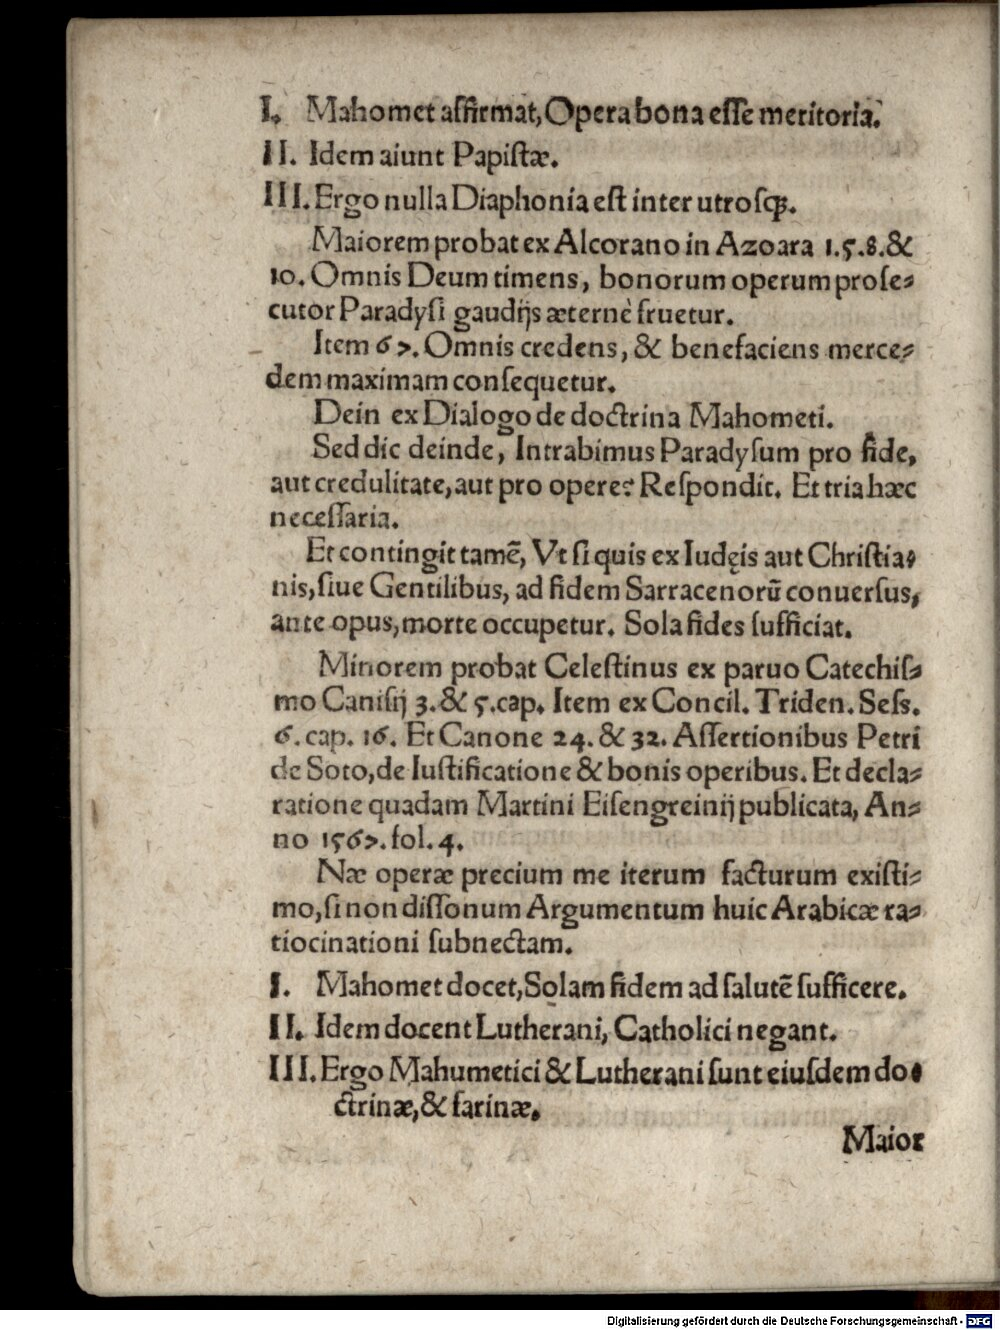 I. Mahomet affirmat, Opera bona eſſe meritoria.
II. Idem aiunt Papiſtæ.
III. Ergo nulla Diaphonia eſt inter utroſq́;.
Maiorem probat ex Alcorano in Azoara 1.5.8.&
10. Omnis Deum timens, bonorum operum proſe⸗
cutor Paradyſi gaudijs æternè fruetur.
Item 67. Omnis credens, & benefaciens merce⸗
dem maximam conſequetur.
Dein ex Dialogo de doctrina Mahometi.
Sed dic deinde, Intrabimus Paradyſum pro fide,
aut credulitate, aut pro opere? Reſpondit. Et tria hæc
neceſſaria.
Et contingit tamẽ, Vt ſi quis ex Iudęis aut Chriſtia⸗
nis, ſiue Gentilibus, ad fidem Sarracenorũ conuerſus,
ante opus, morte occupetur. Sola fides ſufficiat.
Minorem probat Celeſtinus ex paruo Catechiſ⸗
mo Caniſij 3. & 5. cap. Item ex Concil. Triden. Seſs.
6. cap. 16. Et Canone 24. & 32. Aſſertionibus Petri
de Soto, de Iuſtificatione & bonis operibus. Et decla⸗
ratione quadam Martini Eiſengreinij publicata, An⸗
no 1567. fol. 4.
Næ operæ precium me iterum facturum exiſti⸗
mo, ſi non diſſonum Argumentum huic Arabicæ ra⸗
tiocinationi ſubnectam.
I. Mahomet docet, Solam fidem ad ſalutẽ ſufficere.
II. Idem docent Lutherani, Catholici negant.
III. Ergo Mahumetici & Lutherani ſunt eiuſdem do⸗
ctrinæ, & farinæ.
Maior
Digitalisierung gefördert durch die Deutsche Forschungsgemeinschaft - DFG